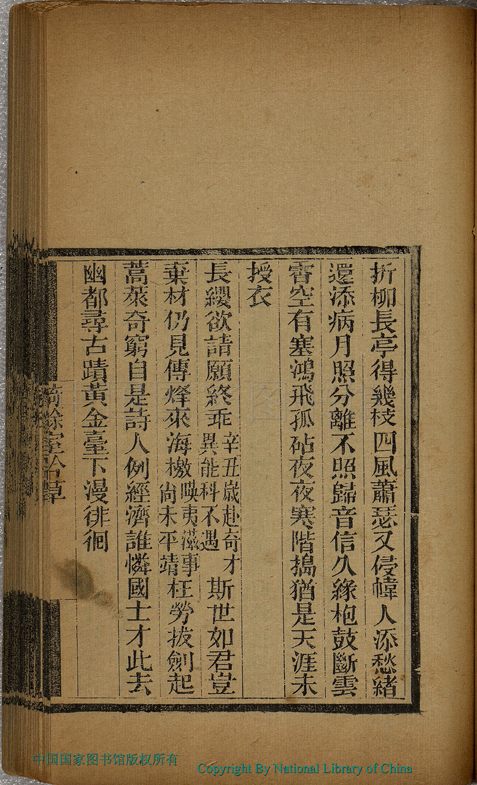 折柳長亭得幾枝四風蕭瑟又侵幃人添愁緒
還添病月照分離不照歸音信久緣枹鼓斷雲
霄空有塞鴻飛孤砧夜夜寒階搗猶是天涯未
授衣
長纓欲請願終乖辛丑歲赴奇才異能科不遇斯世如君豈
棄材仍見傳烽來海檄㗂夷滋事尚未平靖枉勞拔劍起
蒿萊奇窮自是詩人例經濟誰憐國士才此去
幽都尋古蹟黃金臺下漫徘徊
餘室吟草
中国国家图书馆版权所有
Copyright By National Library of China